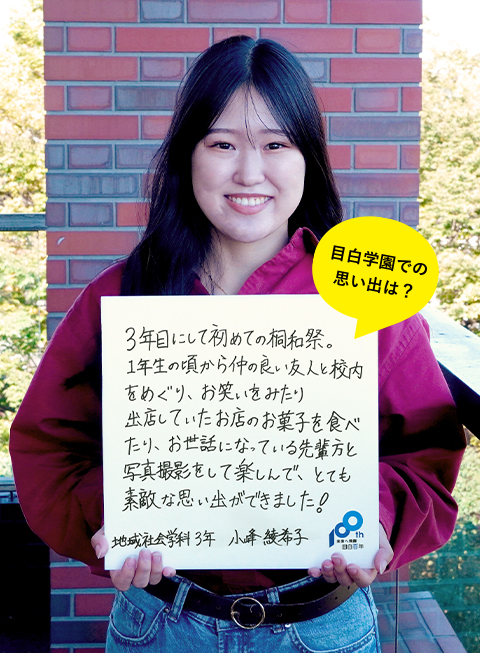 目白学園での
思い出は？
3年目にして初めての桐和祭。
1年生の頃から仲の良い友人と校内
をめぐり、お笑いをみたり
出店していたお店のお菓子を食べ
たり、お世話になっている先輩方と
写真撮影をして楽しんで、とても
素敵な思い出ができました!
地域社会学科3年 小峰 綾希子
100th
目白百年